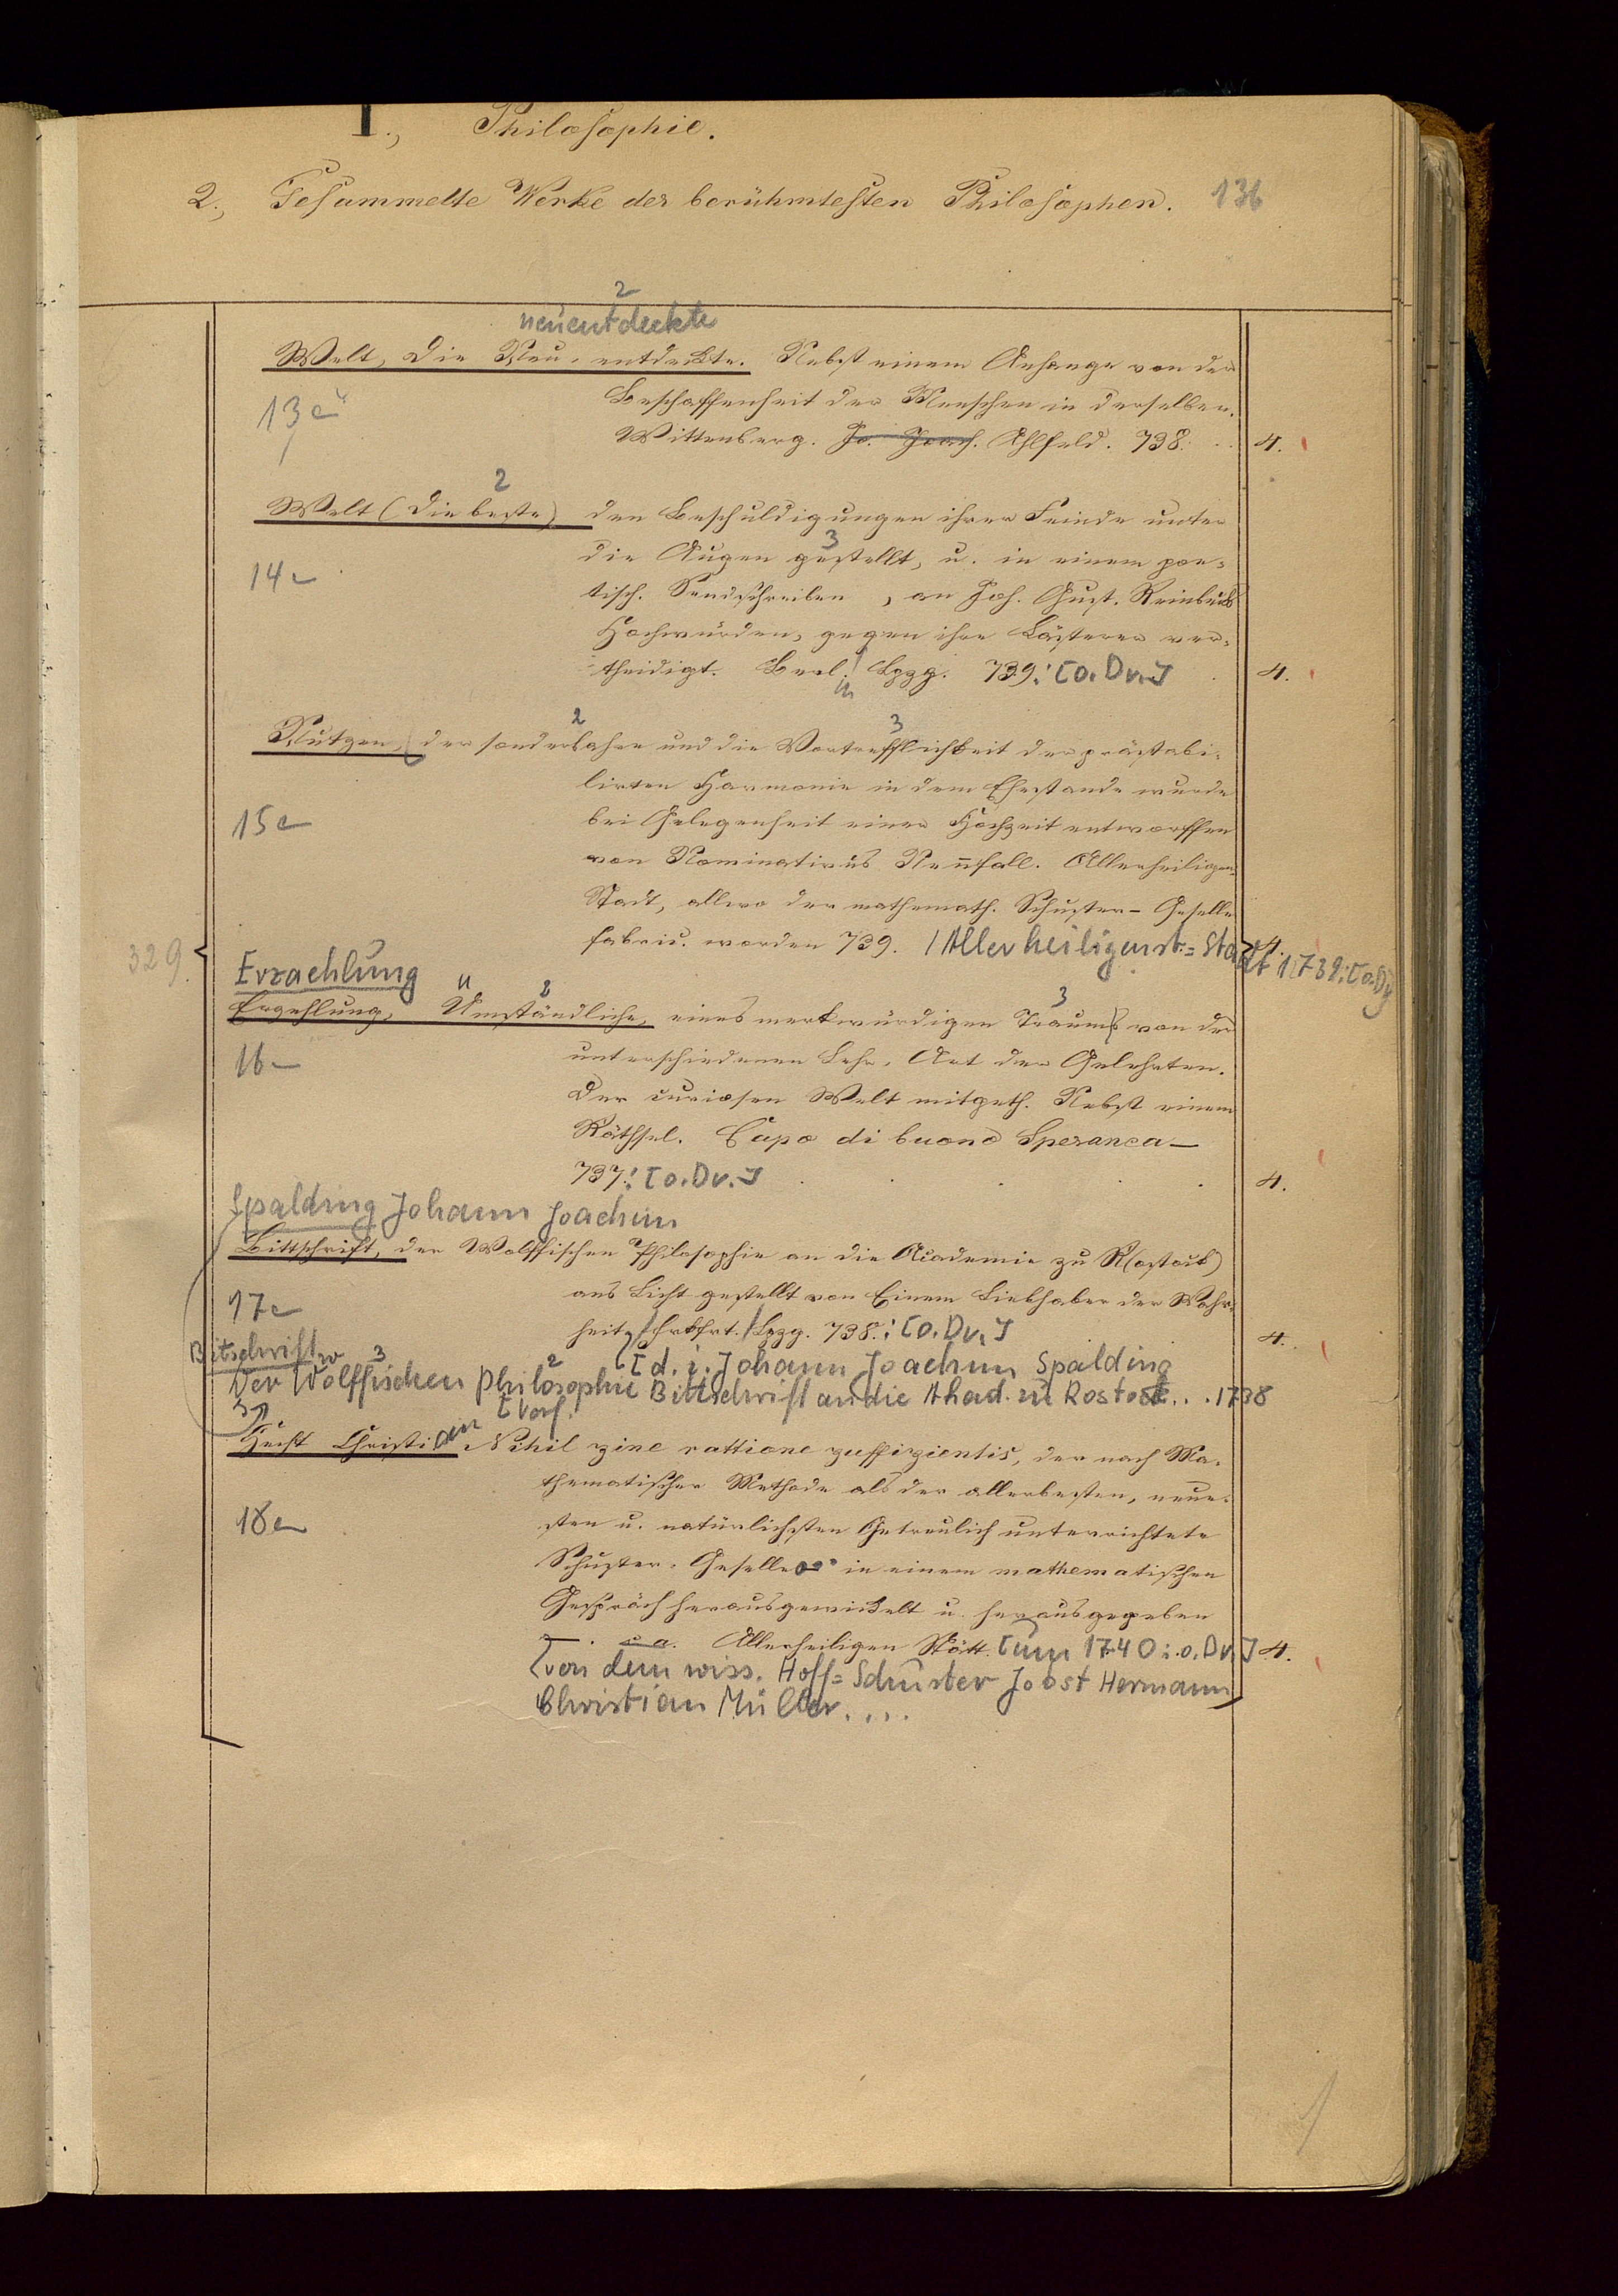 I., Philosophie.
2., Gesammelte Werke der berühmtesten Philosophen. 136
2
neuentdeckte
Welt, die Neu-entdeckte. Nebst einem Anhange von der
Beschaffenheit der Menschen in derselben.
13
Wittenberg. Ahlfeld. 738. 4.
2
Welt (die beste) den Beschuldigungen ihrer Feinde unter
3
die Augen gestellt, u. in einem poe-
14
tisch. Sendschreiben, an Joh. Gust. Reinbeck
Hochwürden, gegen ihre Lästerer ver-
theidigt. Berl. Lpzg. 739: [o. Dr.] 4.
2 3
Nutzen, der sonderbahre und die Vortrefflichkeit der prästabi-
lirten Harmonie in dem Ehestande wurde
15
bei Gelegenheit einer Hochzeit entworffen
von Nominativus Nennfall. Allerheiligen-
Stadt, allwo der mathemath. Schuster-Geselle
fabric. worden 739. /Allerheiligenst.=Stadt 1739: [o. Dr.] 4.
329.
Erzaehlung
u 2 3
Erzehlung, Umständliche, eines merkwürdigen Traums von der
16
unterschiedenen Lehr-Art der Gelehrten.
Der curiosen Welt mitgeth. Nebst einem
Räthsel. Capo di buono Speranca—
737.: [o. Dr.] 4.
Spalding Johann Joachim
Bittschrift, der Wolffischen Philosophie an die Academie zu R(ostock)
17
ans Licht gestellt von Einem Liebhaber der Wahr-
heit, Frkfrt. / Lpzg. 738.: [o. Dr.] 4.
Bitschrift
[d. i. Johann Joachim Spalding
3 2
Der Wolffischen Philosophie Bittschrift an die Akad. zu Rostock...1738
[Verf.
Hecht Christian Nihil zine rattione zuffizientis, der nach Ma-
thematischer Methode als der allerbesten, neue-
18
sten u. natürlichsten Getreulich unterrichtete
Schuster-Geselle in einem mathematischen
Gespräch herausgewickelt u. herausgegeben
Allerheiligen Stätt. [um 1740: o. Dr.] 4.
[von dem wiss. Hoff=Schuster Jobst Hermann
Christian Müller....
1